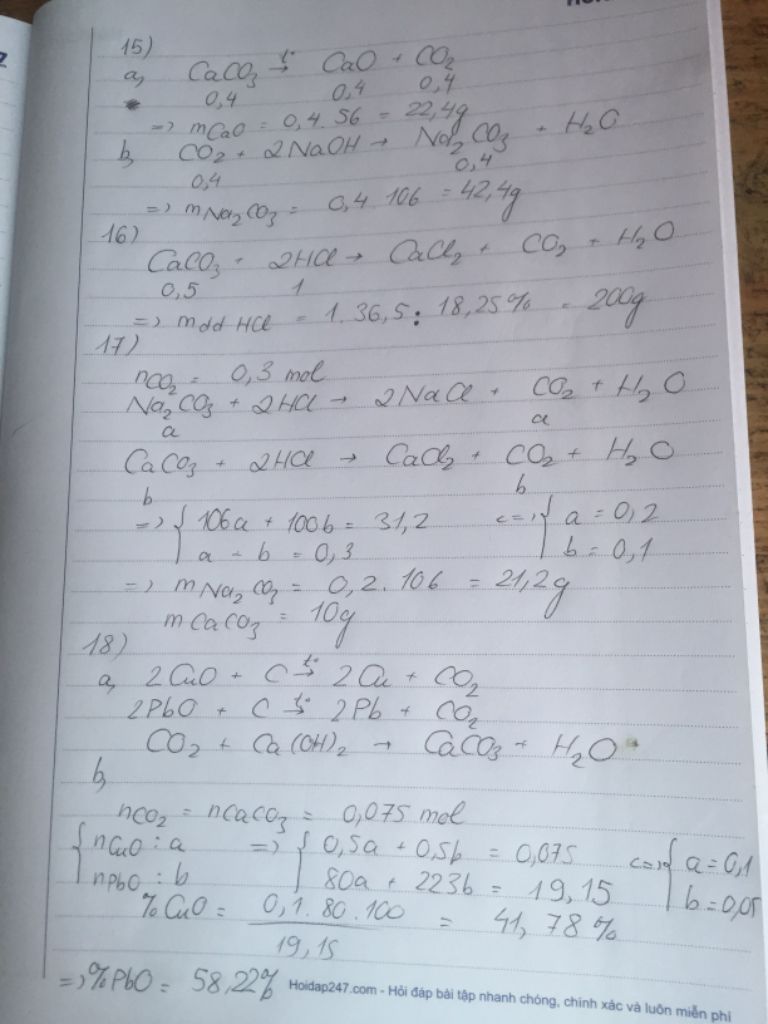 15)
a, CaCO₃ →(t°) CaO + CO₂
0,4 0,4 0,4
=> mCaO = 0,4.56 = 22,4g
b, CO₂ + 2NaOH → Na₂CO₃ + H₂O
0,4 0,4
=> mNa₂CO₃ = 0,4 106 = 42,4g
16)
CaCO₃ + 2HCl → CaCl₂ + CO₂ + H₂O
0,5 1
=> mdd HCl = 1.36,5 : 18,25% = 200g
17)
nCO₂ = 0,3 mol
Na₂CO₃ + 2HCl → 2NaCl + CO₂ + H₂O
a a
CaCO₃ + 2HCl → CaCl₂ + CO₂ + H₂O
b b
=> { 106a + 100b = 31,2 <=> { a = 0,2
a + b = 0,3 b = 0,1
=> mNa₂CO₃ = 0,2.106 = 21,2g
mCaCO₃ = 10g
18)
a, 2CuO + C →(t°) 2Cu + CO₂
2PbO + C →(t°) 2Pb + CO₂
CO₂ + Ca(OH)₂ → CaCO₃ + H₂O
b,
nCO₂ = nCaCO₃ = 0,075 mol
{ nCuO : a => { 0,5a + 0,5b = 0,075 <=> { a = 0,1
nPbO : b 80a + 223b = 19,15 b = 0,05
%CuO = 0,1.80.100 = 41,78%
19,15
=> %PbO = 58,22%
Hoidap247.com - Hỏi đáp bài tập nhanh chóng, chính xác và luôn miễn phí